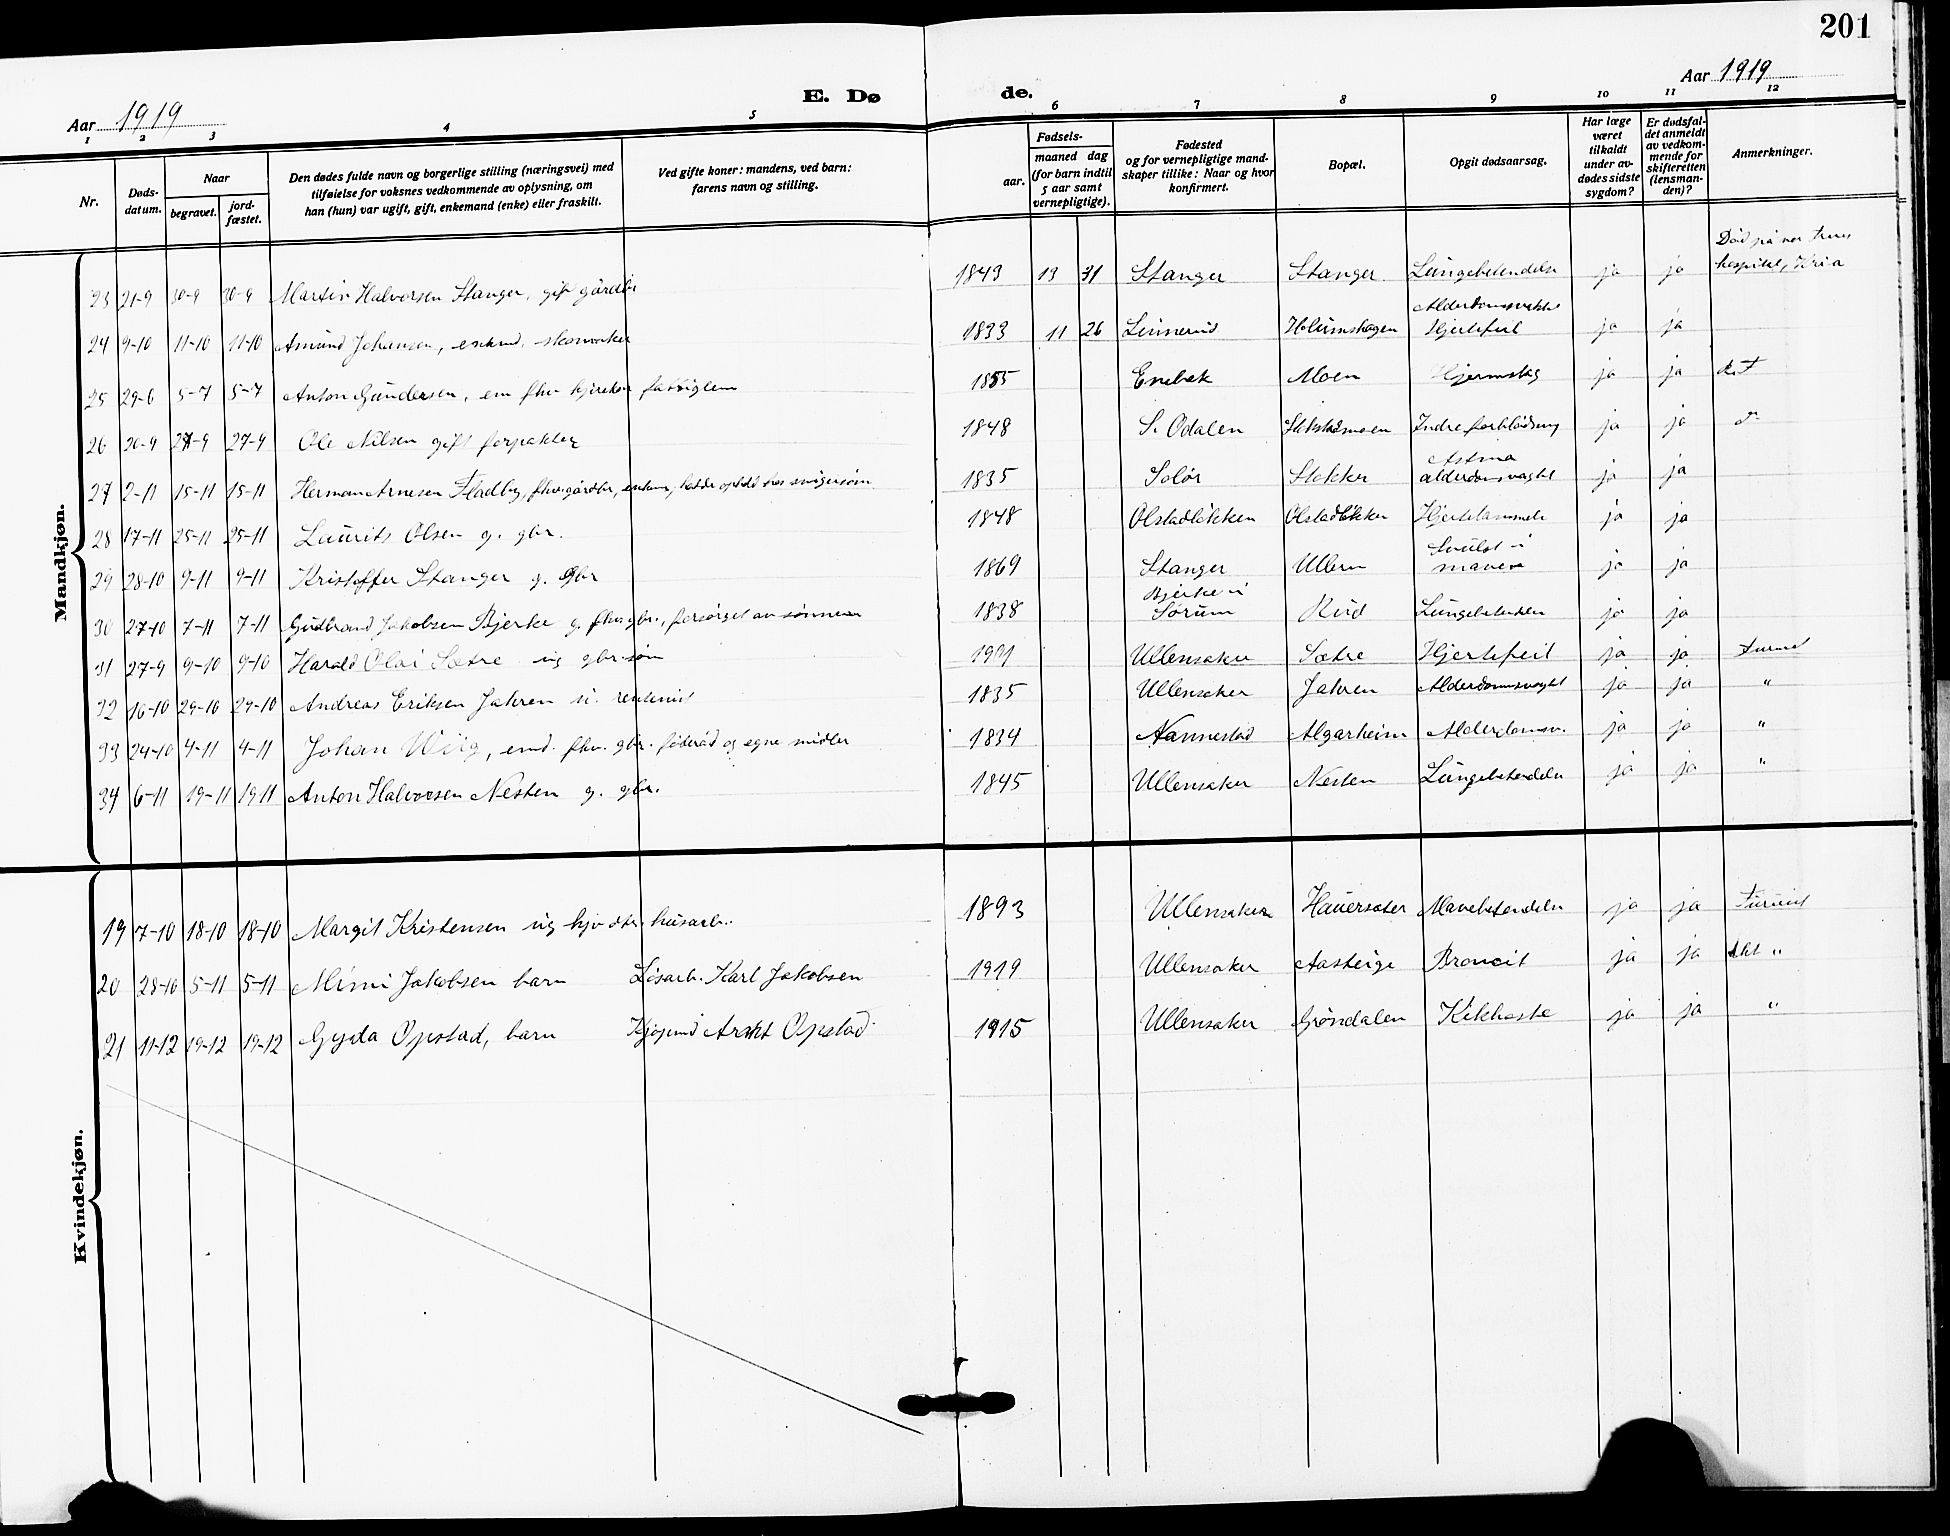 201
Aar 1919
E. Døde.
Aar 1919
1 2 3 4 5 6 7 8 9 10 11 12
Nr.
Døds-
datum.
Naar
begravet.
jord-
fæstet.
Den dødes fulde navn og borgerlige stilling (næringsvei) med
tilføielse for voksnes vedkommende av oplysning, om
han (hun) var ugift, gift, enkemand (enke) eller fraskilt.
Ved gifte koner: mandens, ved barn:
farens navn og stilling.
Fødsels-
aar.
maaned dag
(for barn indtil
5 aar samt
vernepligtige).
Fødested
og for vernepligtige mand-
skaper tillike: Naar og hvor
konfirmert.
Bopæl.
Opgit dødsaarsag.
Har læge
været
tilkaldt
under av-
dødes sidste
sygdom?
Er dødsfal-
det anmeldt
av vedkom-
mende for
skifteretten
(lensman-
den)?
Anmerkninger.
Mandkjøn.
23 21-9 30-9 30-9 Martin Halvorsen Stanger, gift gårdbr 1843 13 31 Stanger Stanger Lungebetendelse ja ja Død på
hospital, Kria
24 9-10 11-10 11-10 Amund Johansen, enkmd. skomaker 1833 11 26 Linnerud Holumskogen Alderdomsvakh
Hjertefeil ja ja
25 29-6 5-7 5-7 Anton Gundersen, em fhv kjirekar fattiglem 1855 Enebak Moen Hjernslag ja ja
26 20-9 27-9 27-9 Ole Nilsen gift forpakter 1848 S. Odalen Stokstadmoen Indre forblødning ja ja
27 2-11 15-11 15-11 Herman Arnesen Fladby, fhv. gårdbr, enkem, hadde ophold hos svigersøn 1835 Solør Stokker Astma
alderdomsvaghet ja ja
28 17-11 25-11 25-11 Laurits Olsen g. gbr. 1848 Olstadløkken Olstadløkken Hjertelammelse ja ja
29 28-10 9-11 9-11 Kristoffer Stanger g. gbr 1869 Stanger Ullern Svulst i
maven ja ja
30 27-10 7-11 7-11 Gudbrand Jakobsen Bjerke g. fhv. gbr., forsørget av sønnen 1838 Bjerke i
Sørum Rud Lungebetendelse ja ja
31 27-9 9-10 9-10 Harald Olai Sætre ug gbr.søn 1901 Ullensaker Sætre Hjertefeil ja ja
32 16-10 29-10 29-10 Andreas Eriksen Jahren u. rentenist 1835 Ullensaker Jahren Alderdomsvaghet ja ja "
33 24-10 4-11 4-11 Johan Wiig, emd. fhv. gbr. føderåd og egne midler 1834 Nannestad Algarheim Alderdomsv. ja ja "
34 6-11 19-11 19 11 Anton Halvorsen Nesten g. gbr. 1845 Ullensaker Nesten Lungebetendelse ja ja "
Kvindekjøn.
19 7-10 18-10 18-10 Margit Kristensen ug hjv dtr. husarb. 1893 Ullensaker Hauersæter Mavebetendelse ja ja
20 28-10 5-11 5-11 Mimi Jakobsen barn Løsarb. Karl Jakobsen 1919 Ullensaker Aasteige Broncit ja ja "
21 11-12 19-12 19-12 Gyda Opstad, barn Opstad 1915 Ullensaker Grøndalen Kikhoste ja ja "